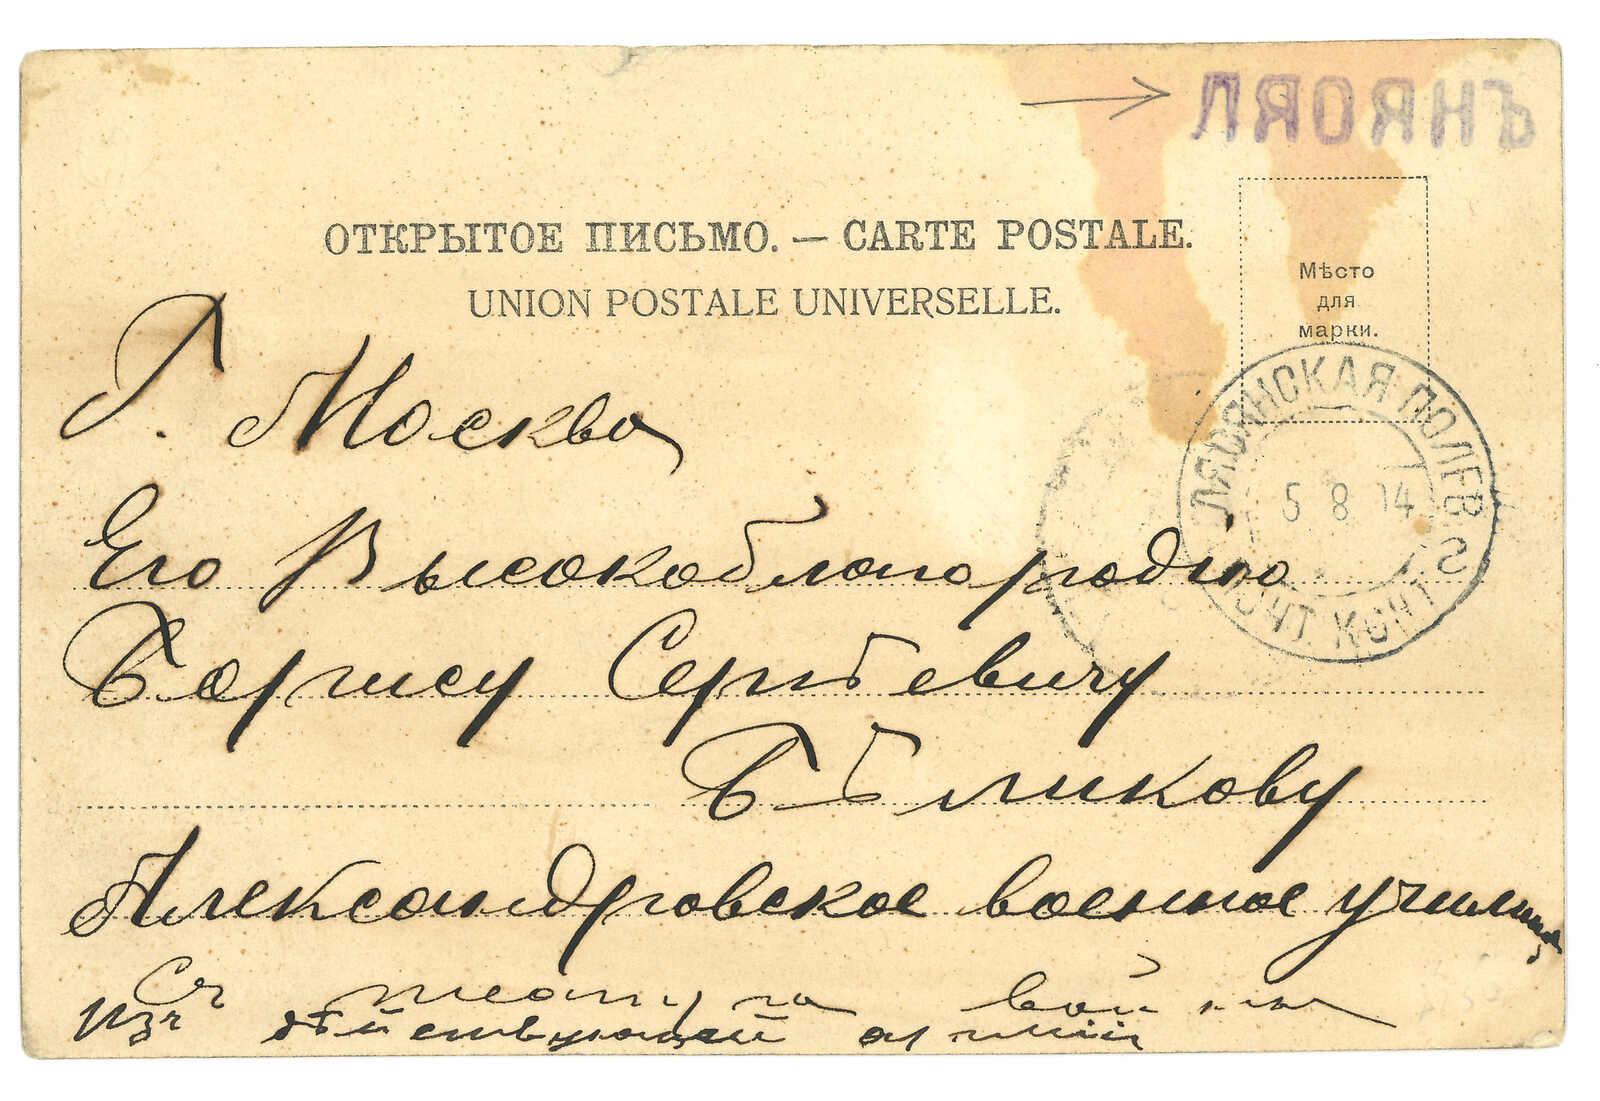 ЛЯОЯНЪ
ОТКРЫТОЕ ПИСЬМО. — CARTE POSTALE.
UNION POSTALE UNIVERSELLE.
Мѣсто
для
марки.
Г. Москва
ЛЯОЯНСКАЯ ПОЛЕВ.
5 8 04
ПОЧТ. КОНТ. 2
Его Высокоблагородію
Борису Сергѣевичу
Бѣликову
Александровское военное училище
Съ театра войны
Изъ дѣйствующей арміи